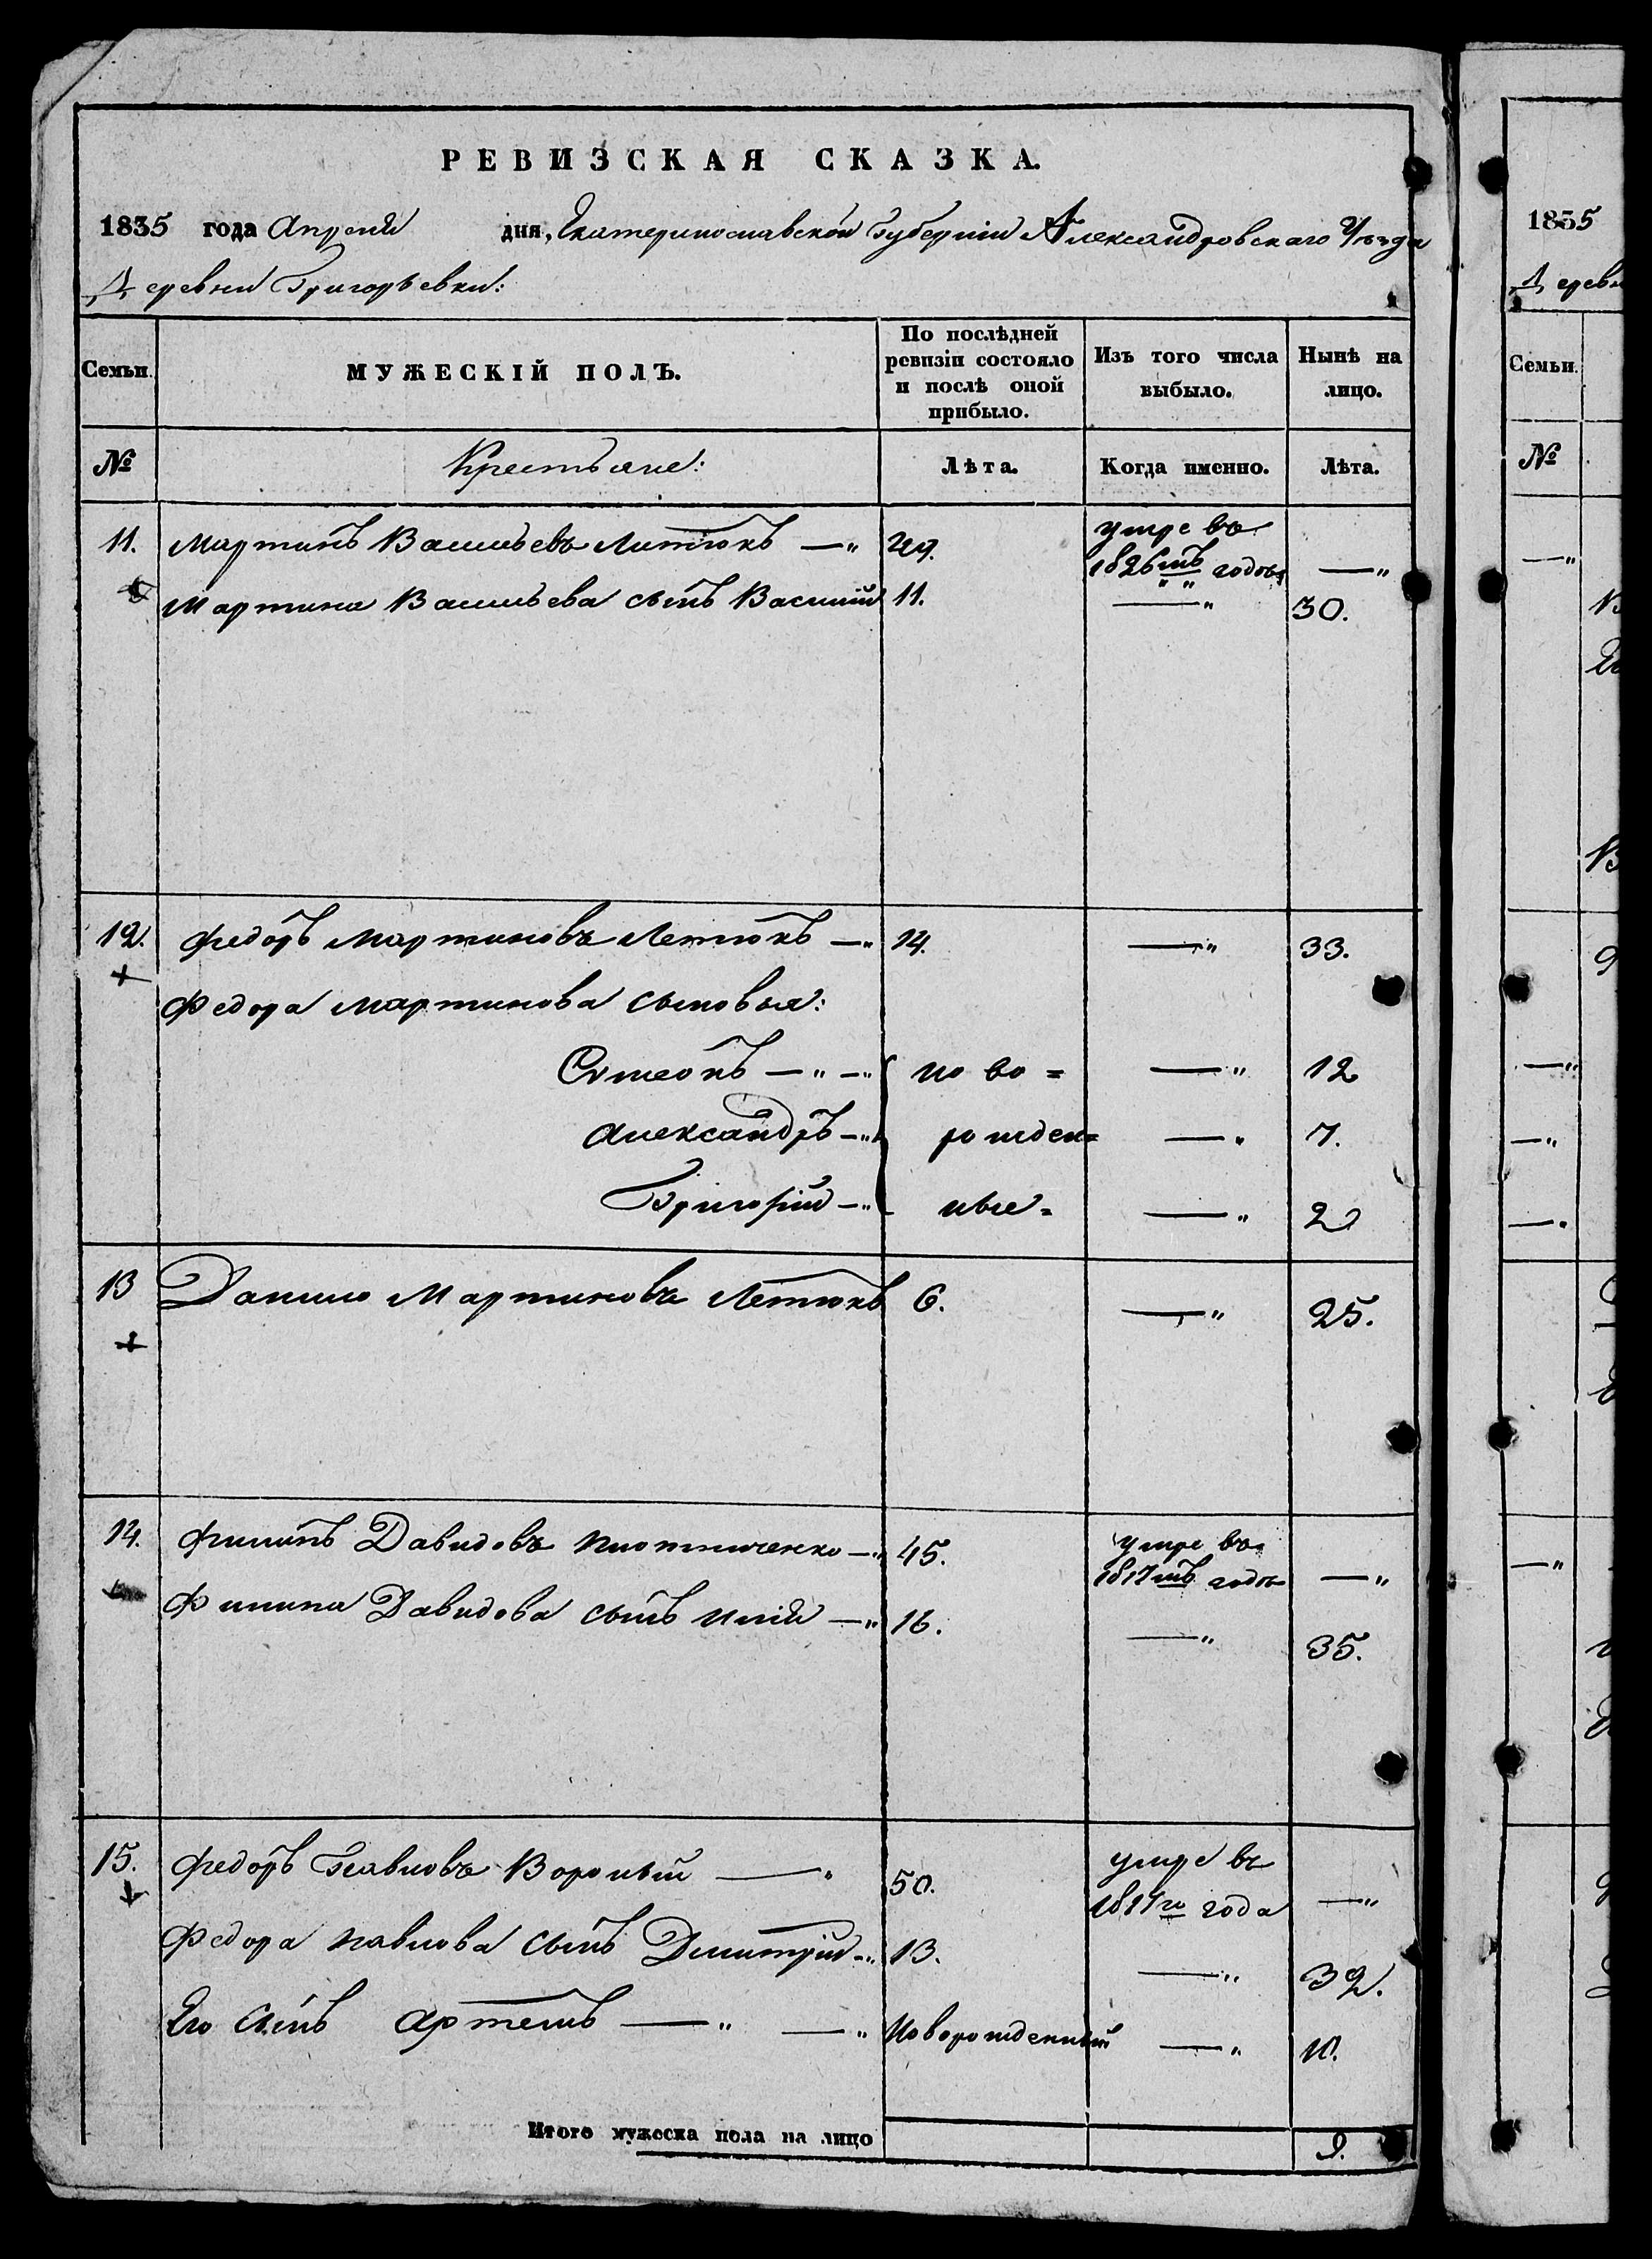 РЕВИЗСКАЯ СКАЗКА.
1835 года Апреля дня, Екатеринославской Губерніи Александровскаго Уѣзда
Деревни Григорьевки:
Семьи. МУЖЕСКІЙ ПОЛЪ. По послѣдней ревизіи состояло и послѣ оной прибыло. Изъ того числа выбыло. Нынѣ на лицо.
№ Крестьяне: Лѣта. Когда именно. Лѣта.
11. Мартинъ Васильевъ Литюкъ —„ умре въ 1826мъ годѣ —„
Мартина Васильева сынъ Василій 11. —„ 30.
12. Федоръ Мартиновъ Летюкъ —„ 14. —„ 33.
Федора Мартинова сыновья:
Симеонъ —„ —„ ново= —„ 12
Александръ —„ рожден= —„ 7.
Григорій —„ ные= —„ 2
13 Данило Мартиновъ Летюкъ 6. —„ 25.
14. Филипъ Давидовъ Плотниченко —„ 45. умре въ 1817мъ годѣ —„
Филипа Давидова сынъ Илій —„ 16. —„ 35.
15. Федоръ Павловъ Вороный —„ 50. умре въ года —„
Федора Павлова сынъ Дмитрій —„ 13. —„ 32.
Его сынъ Артемъ —„ —„ Новорожденный —„ 10.
Итого мужеска пола на лицо 9.
1835
Деревн
Семьи.
№